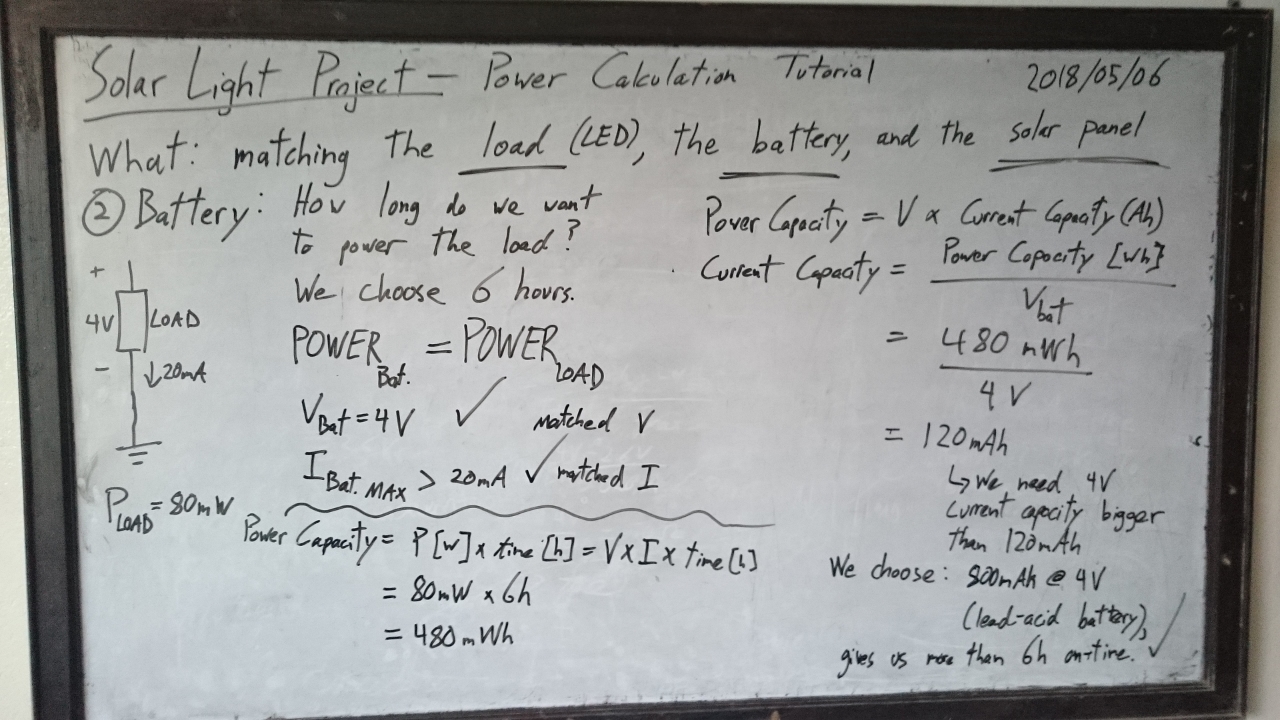 Solar Light Project - Power Calculation Tutorial 2018/05/06
What: matching the load (LED), the battery, and the solar panel
② Battery: How long do we want
to power the load?
We choose 6 hours.
+
4V LOAD
-
↓20mA
P LOAD = 80mW
POWER Bat. = POWER LOAD
V Bat = 4V ✓ matched V
I Bat. MAX > 20mA ✓ matched I
Power Capacity = P[W] x time [h] = V x I x time [h]
= 80mW x 6h
= 480mWh
Power Capacity = V x Current Capacity (Ah)
Current Capacity = Power Capacity [Wh]
V bat
= 480 mWh
4 V
= 120mAh
↳ We need 4V
current capacity bigger
than 120mAh
We choose: 800mAh @ 4V
(lead-acid battery),
gives us more than 6h on-time. ✓